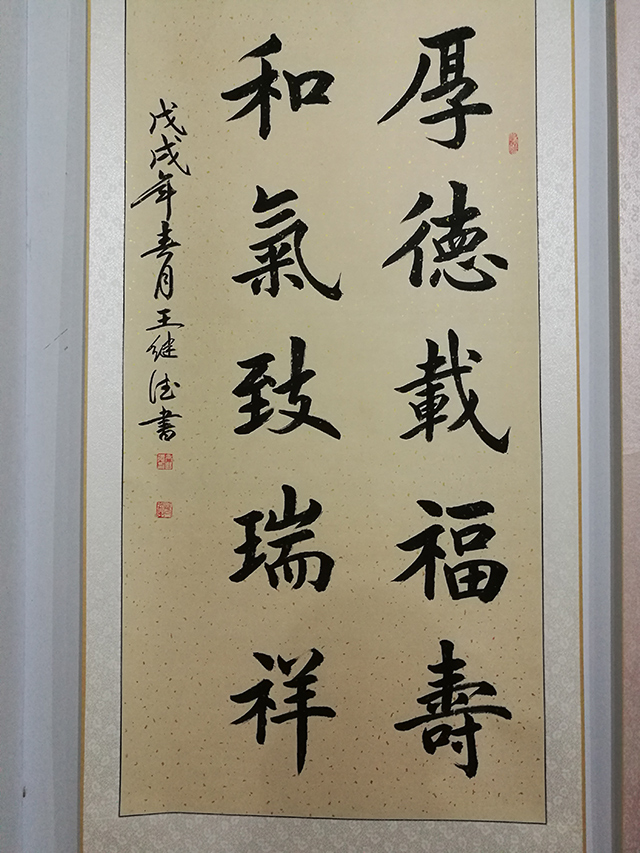 厚德載福壽
和氣致瑞祥
戊戌年春月王继德書